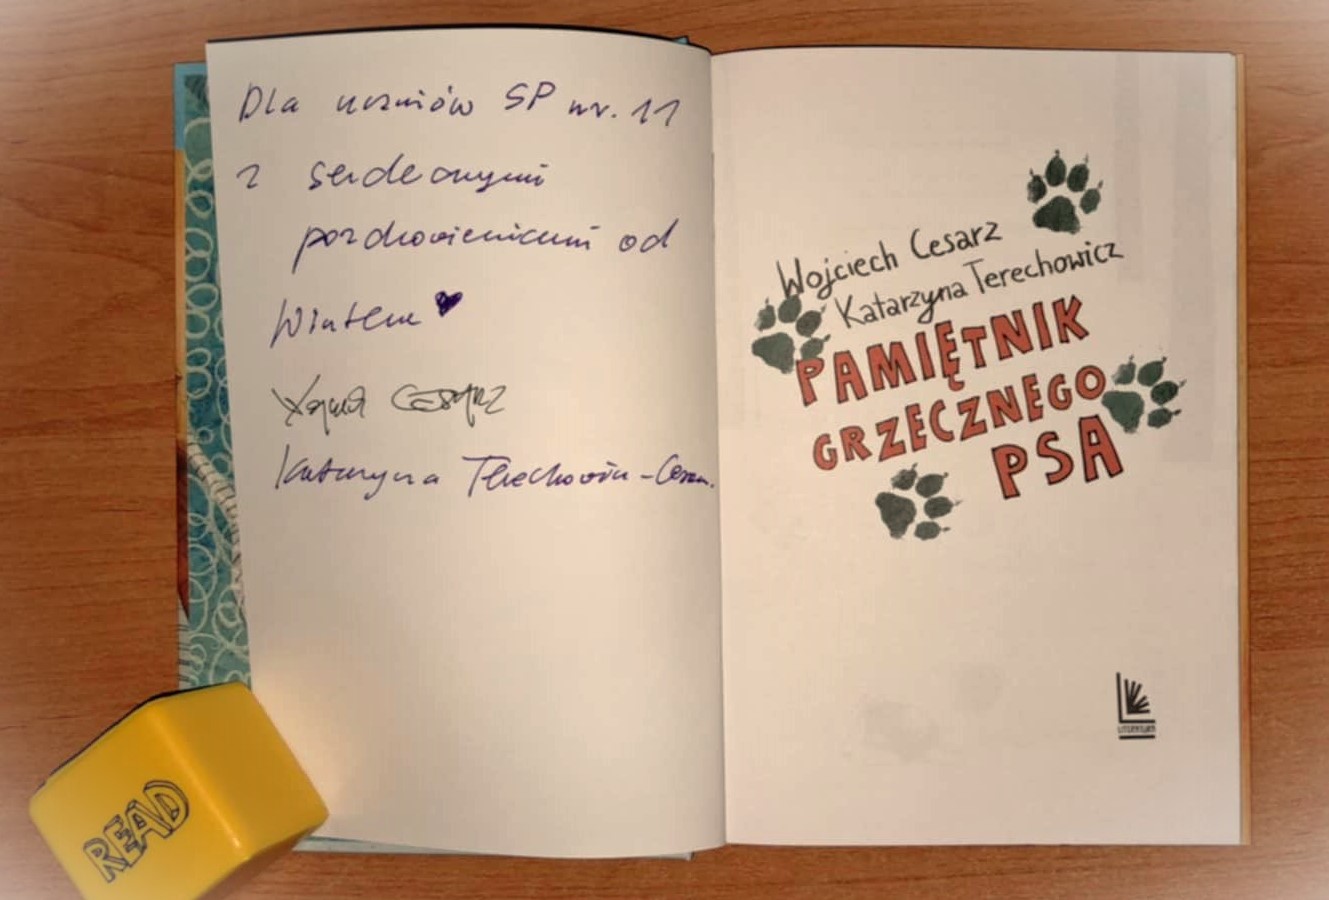 Dla uczniów SP nr. 11
z serdecznymi
pozdrowieniami od
Wintera
Cesarz
Katarzyna Terechowicz-Cesarz
Wojciech Cesarz
Katarzyna Terechowicz
PAMIĘTNIK
GRZECZNEGO
PSA
LITERATURA
READ